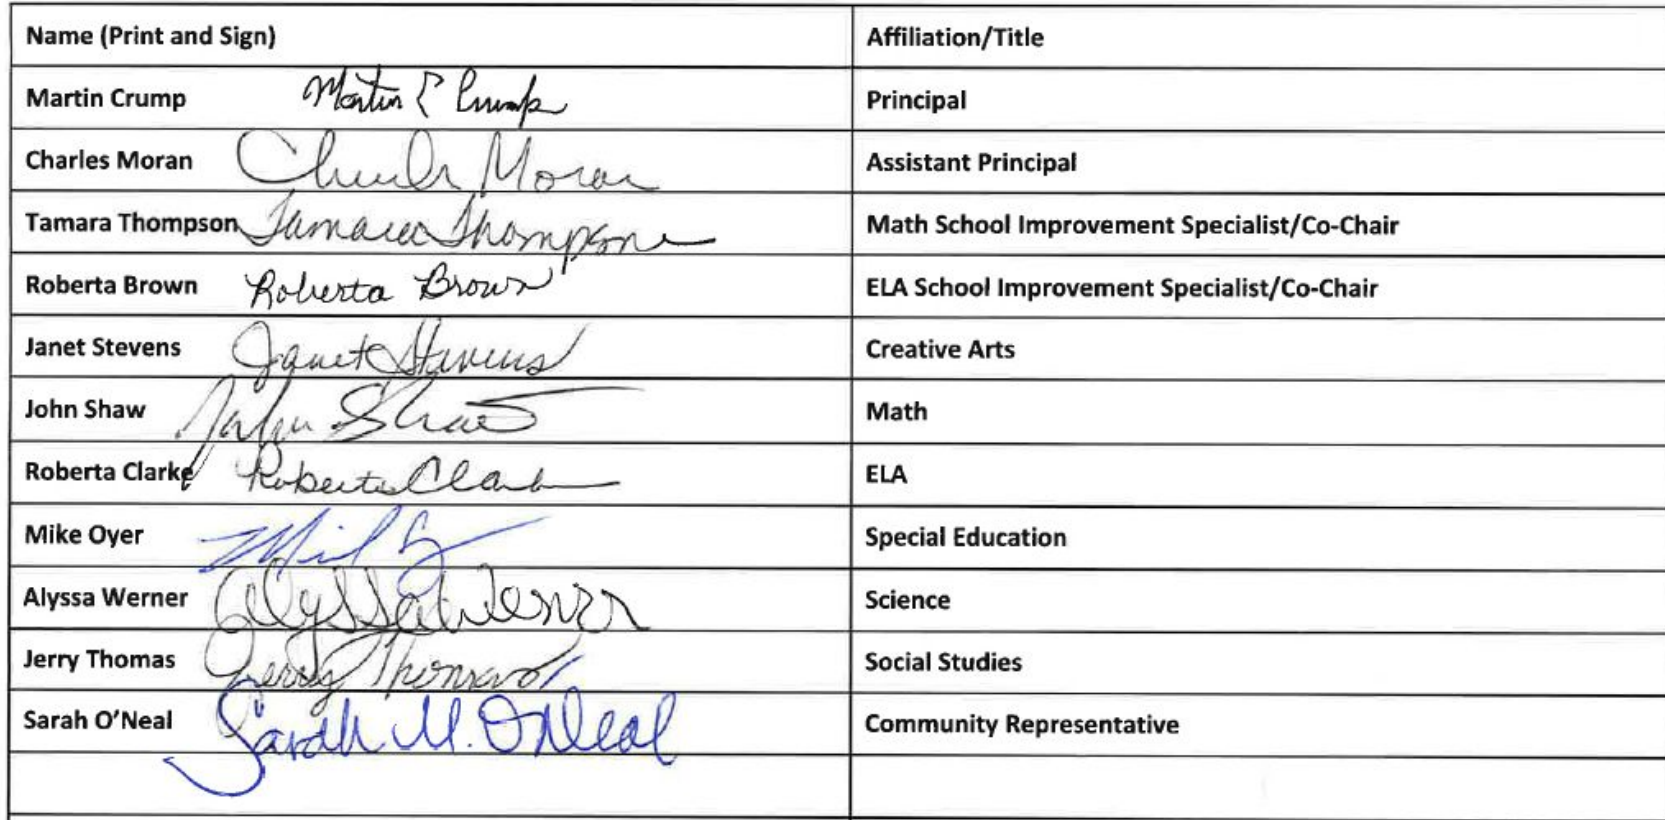 Name (Print and Sign) Affiliation/Title
Martin Crump Martin E Crump Principal
Charles Moran Charles Moran Assistant Principal
Tamara Thompson Tamara Thompson Math School Improvement Specialist/Co-Chair
Roberta Brown Roberta Brown ELA School Improvement Specialist/Co-Chair
Janet Stevens Janet Stevens Creative Arts
John Shaw John Shaw Math
Roberta Clarke Roberta Clarke ELA
Mike Oyer Special Education
Alyssa Werner Alyssa Werner Science
Jerry Thomas Jerry Thomas Social Studies
Sarah O'Neal Sarah M. O'Neal Community Representative